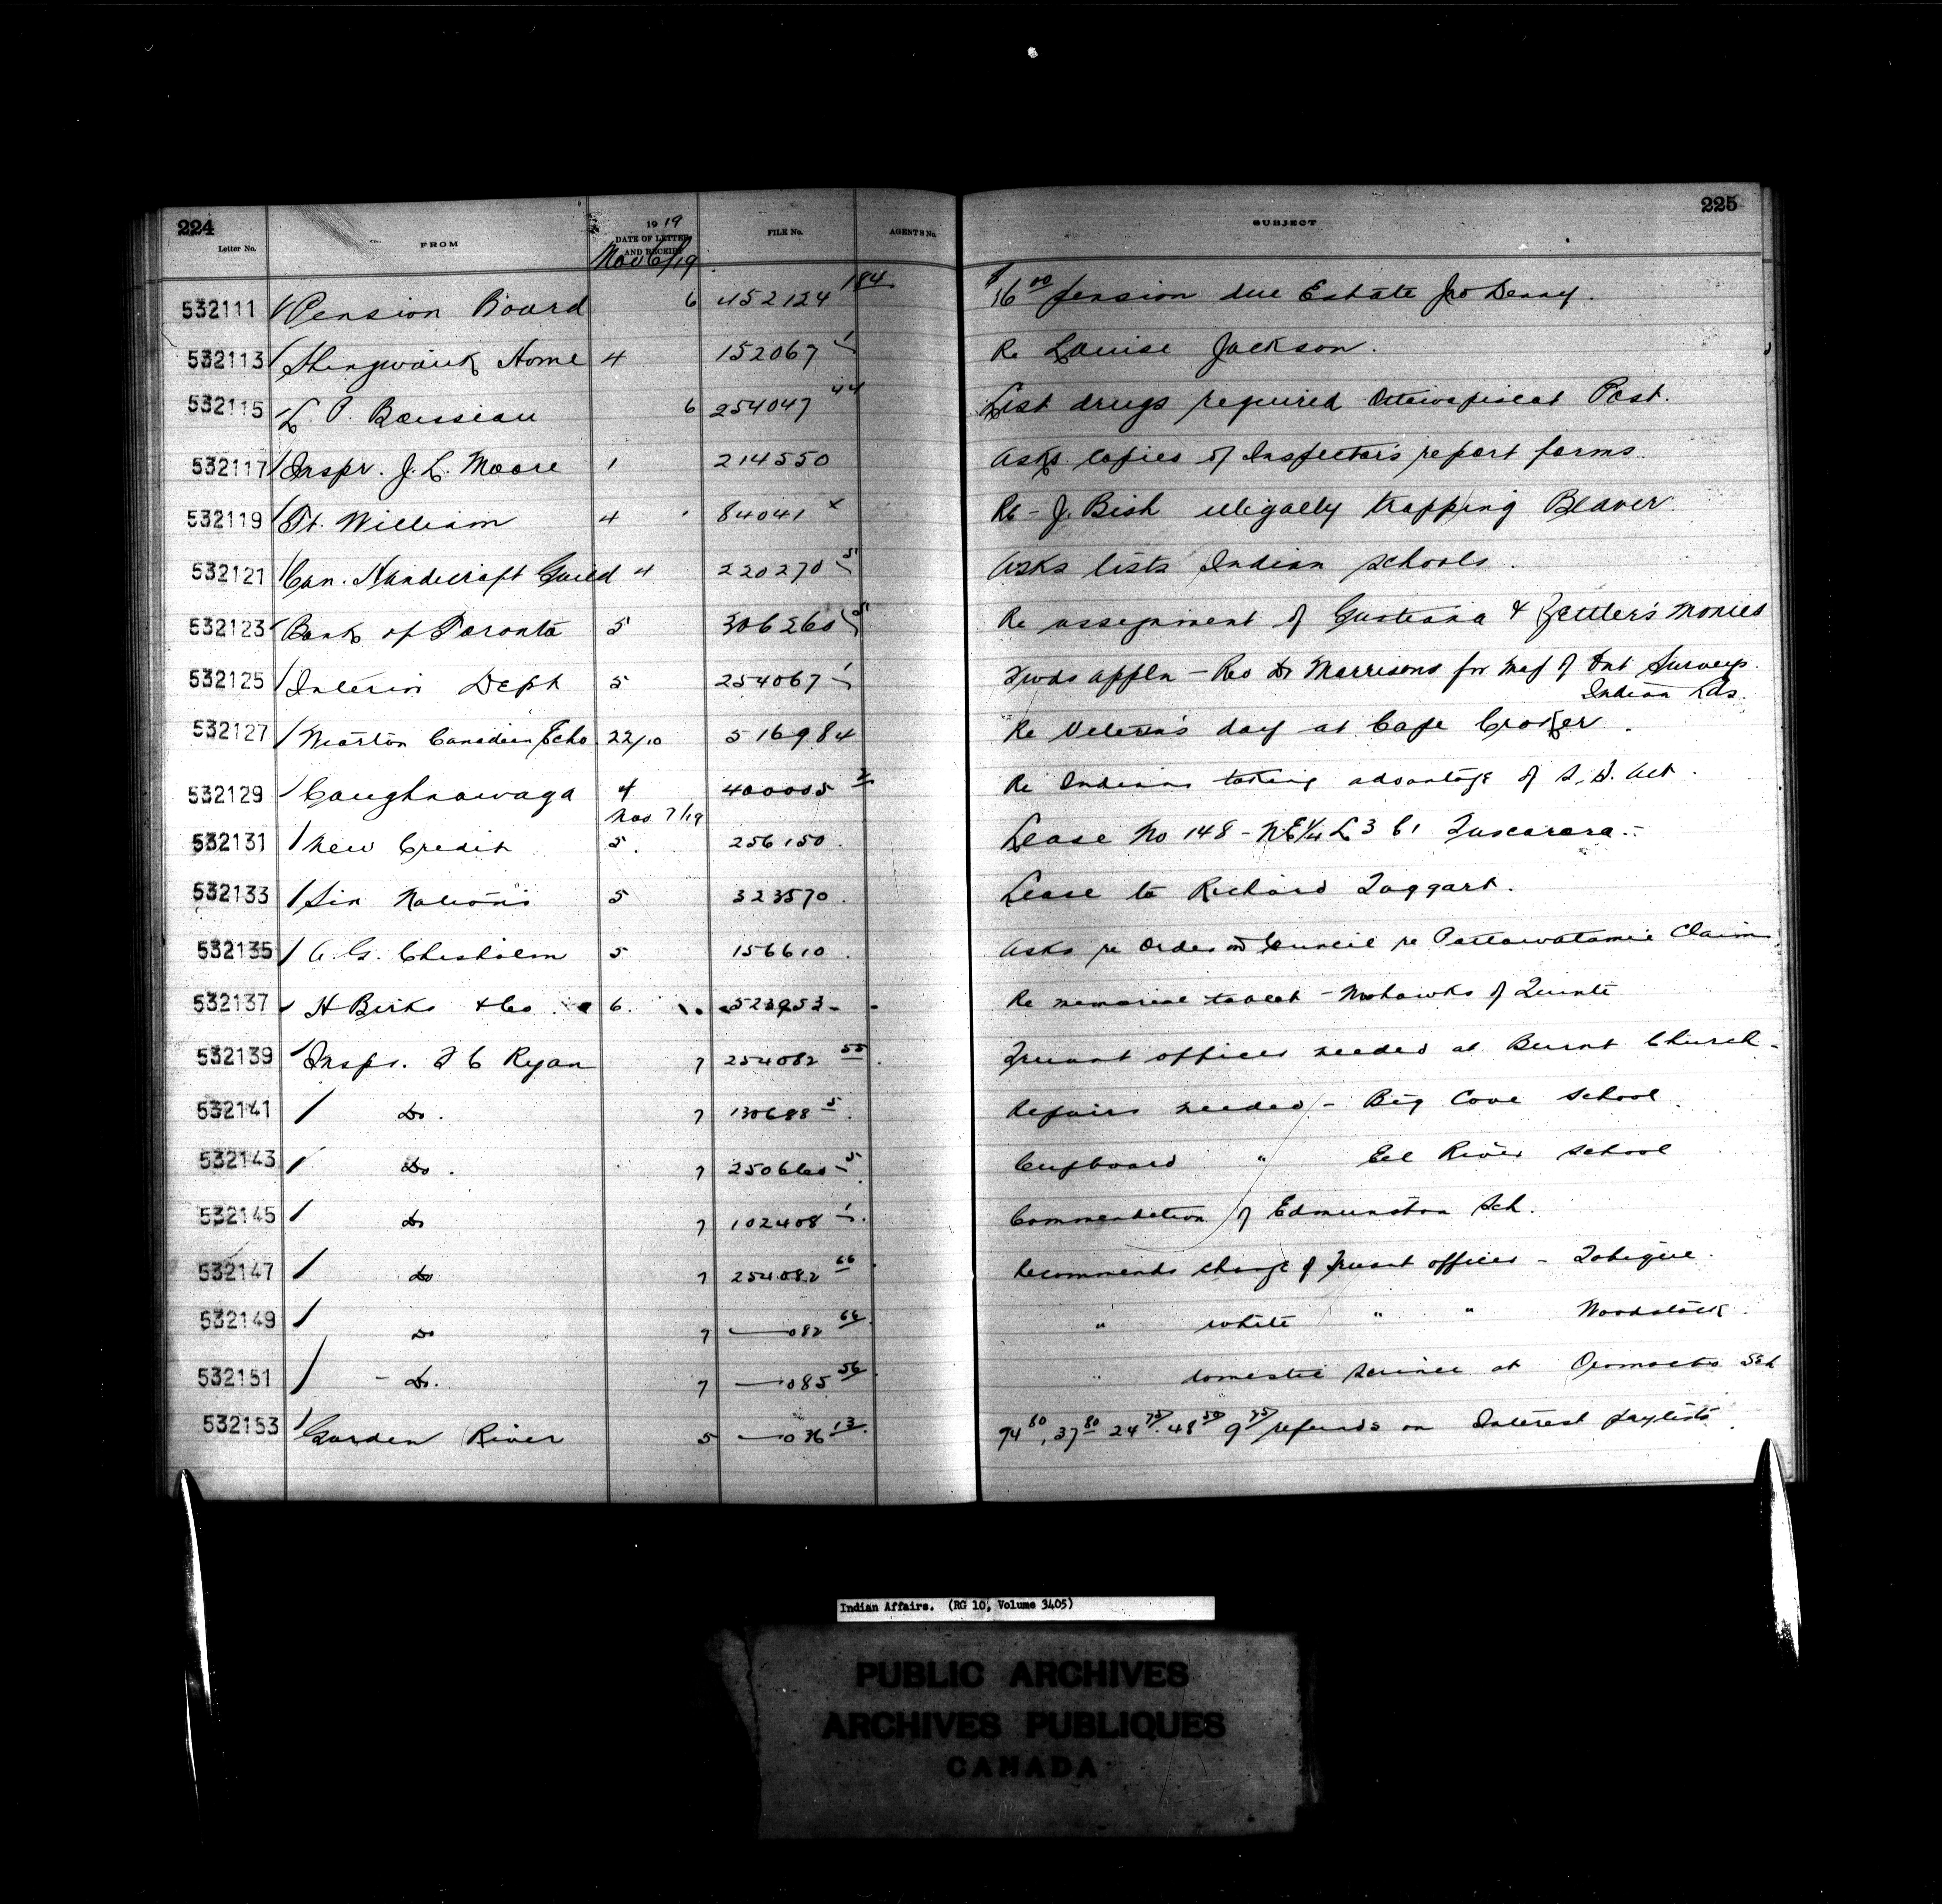 224
225
Letter No. FROM 1919 DATE OF LETTER AND RECEIPT FILE No. AGENTS No. SUBJECT
Nov 6/19
532111 Pension Board 6 452124 184 $16 00 pension due Estate Jno Denny.
532113 Shingwauk Home 4 152067 1 Re Louise Jackson.
532115 L. P. 6 254047 44 List drugs required Attawapiscat Post.
532117 Inspr. J. L. Moore 1 214550 Asks copies of Inspector's report forms.
532119 Ft. William 4 84041 x Re - J. Bish illegally trapping Beaver.
532121 Can. Handicraft Guild 4 220270 5 Asks lists Indian schools.
532123 Bank of Toronto 5 306260 5 Re assignment of & Zettler's monies
532125 Interior Dept 5 254067 1 Fwds appln - Rev Dr Morrisons for map of Ont Surveys.
Indian Lds.
532127 Wiarton Canadian Echo 22/10 516984 Re Veteran's day at Cape Croker.
532129 Caughnawaga 4 400005 2 Re Indians taking advantage of S. S. Act.
Nov 7/19
532131 New Credit 5. 256150. Lease No 148 - NE 1/4 L 3 C 1 Tuscarora.-
532133 Six Nations 5 323570. Lease to Richard Taggart.
532135 A. G. Chisholm 5 156610. Asks re Order in Council re Pottawatamie Claim
532137 H Birks & Co. 6. 523953 Re memorial tablet - Mohawks of Quinte
532139 Inspr. F C Ryan 7 254082 55 Truant officer needed at Burnt Church.
532141 Do. 7 130688 5. Repairs needed - Big Cove School.
532143 Do. 7 250660 5 Cupboard " Eel River School
532145 Do 7 102408 1. Commendation of Edmunston Sch.
532147 Do 7 254082 66 Recommends change of Truant officer - Tobique.
532149 Do 7 —082 64 " white " " Woodstock.
532151 - Do. 7 —085 56 " domestic science at Oromocto Sch
532153 Garden River 5 —036 13 94 80, 37 80 24 75. 48 50 9 75 refunds on Interest paylists.
Indian Affairs. (RG 10, Volume 3405)
PUBLIC ARCHIVES
ARCHIVES PUBLIQUES
CANADA